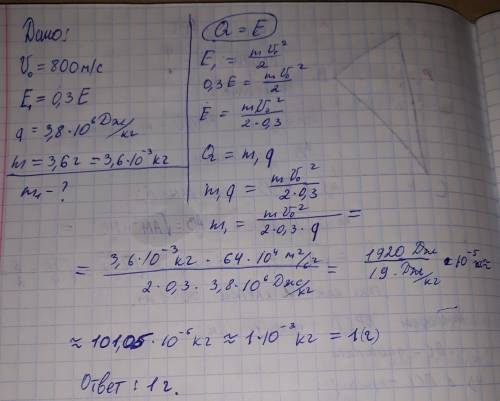 Дано:
V₀ = 800 м/с
E₁ = 0,3 E
q = 3,8·10⁶ Дж/кг
m = 3,6 г = 3,6·10⁻³ кг
m₁ – ?
Q = E
E₁ = mV₀²/2
0,3E = mV₀²/2
E = mV₀²/(2·0,3)
Q = m₁q
m₁q = mV₀²/(2·0,3)
m₁ = mV₀²/(2·0,3·q) =
= (3,6·10⁻³ кг · 64·10⁴ м²/с²)/(2·0,3·3,8·10⁶ Дж/кг) = (1920 Дж)/(19·Дж/кг) · 10⁻⁵
≈ 101,05·10⁻⁵ кг ≈ 1·10⁻³ кг = 1(г)
Ответ: 1 г.